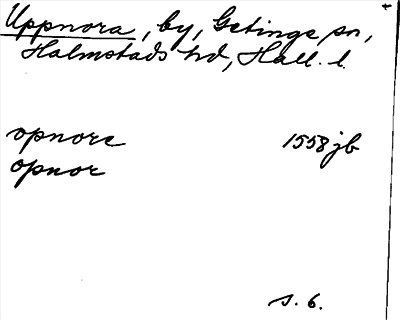 Uppnora, by, Getinge sn,
Halmstads hd, Hall. l.
opnore 1558 jb
opnor
s. 6.